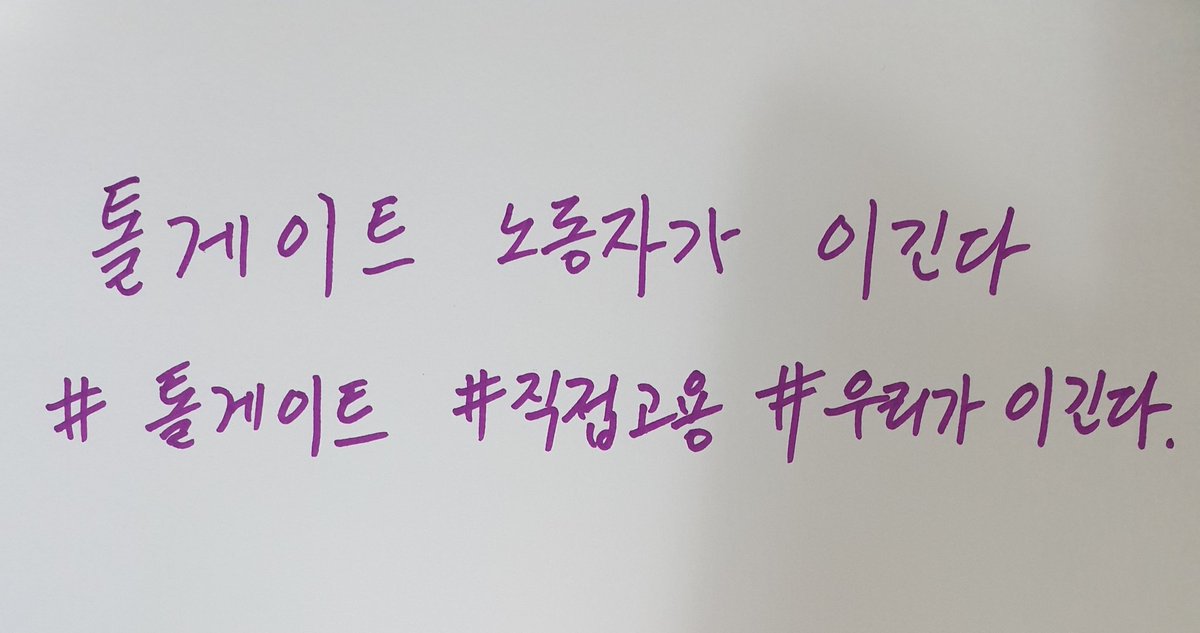 톨게이트 노동자가 이긴다
# 톨게이트 #직접고용 #우리가 이긴다.